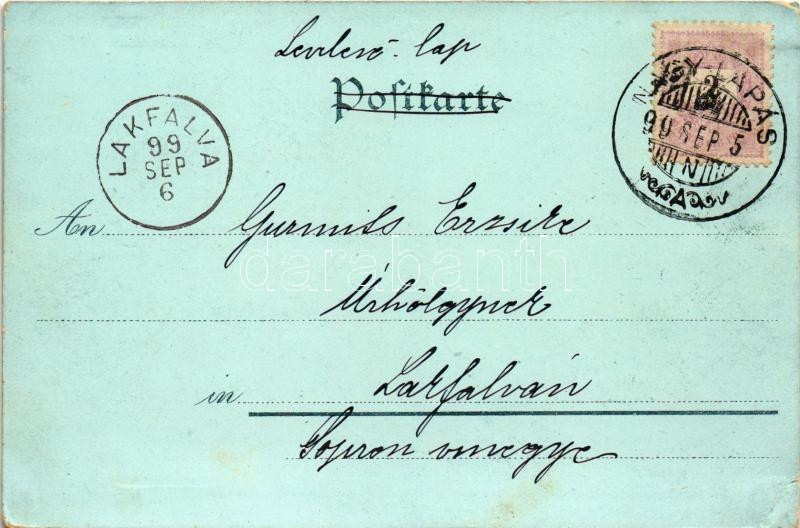 Levelező-lap
Postkarte
NAGY-LAPÁS
2
99 SEP 5
N
A
LAKFALVA
99
SEP
6
An Gurmits Erzsike
Úrhölgynek
in Lakfalván
Sopron vmegye
darabanth